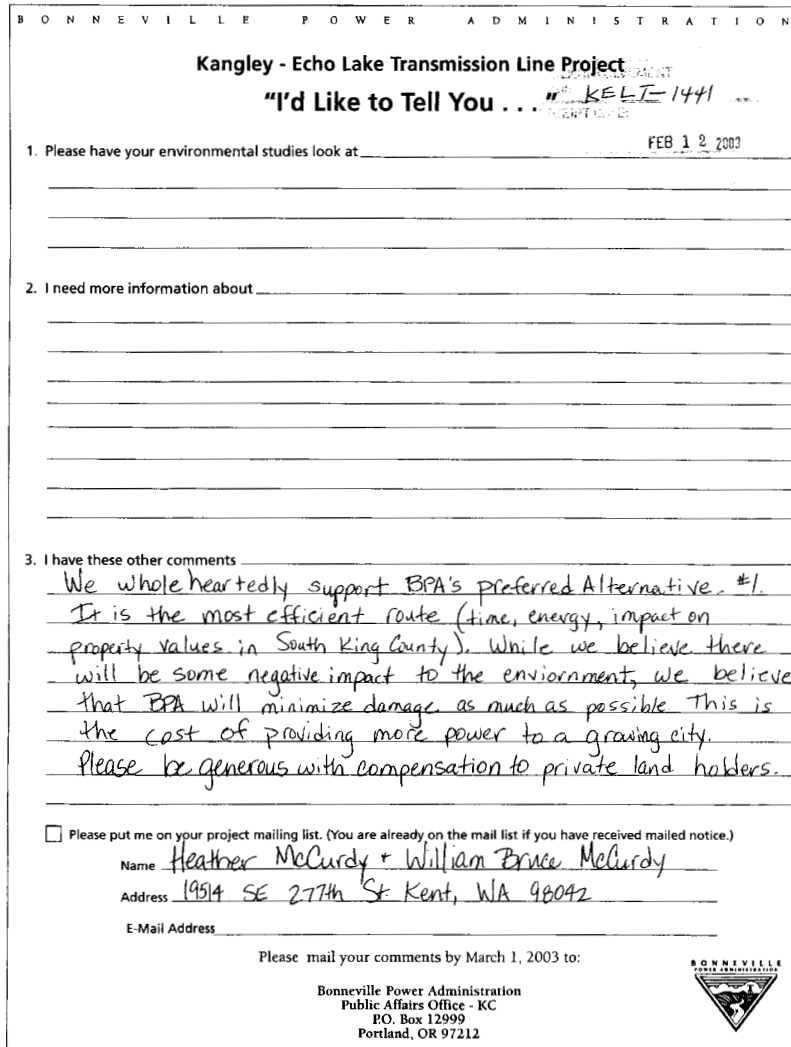 BONNEVILLE POWER ADMINISTRATION
Kangley - Echo Lake Transmission Line Project
"I'd Like to Tell You . . ." KELT-1441
FEB 12 2003
1. Please have your environmental studies look at
2. I need more information about
3. I have these other comments
We wholeheartedly support BPA's preferred Alternative. #1.
It is the most efficient route (time, energy, impact on
property values in South King County). While we believe there
will be some negative impact to the enviornment, we believe
that BPA will minimize damage as much as possible This is
the cost of providing more power to a growing city.
Please be generous with compensation to private land holders.
Please put me on your project mailing list. (You are already on the mail list if you have received mailed notice.)
Name Heather McCurdy + William Bruce McCurdy
Address 19514 SE 277th St Kent, WA 98042
E-Mail Address
Please mail your comments by March 1, 2003 to:
BONNEVILLE
POWER ADMINISTRATION
Bonneville Power Administration
Public Affairs Office - KC
P.O. Box 12999
Portland, OR 97212